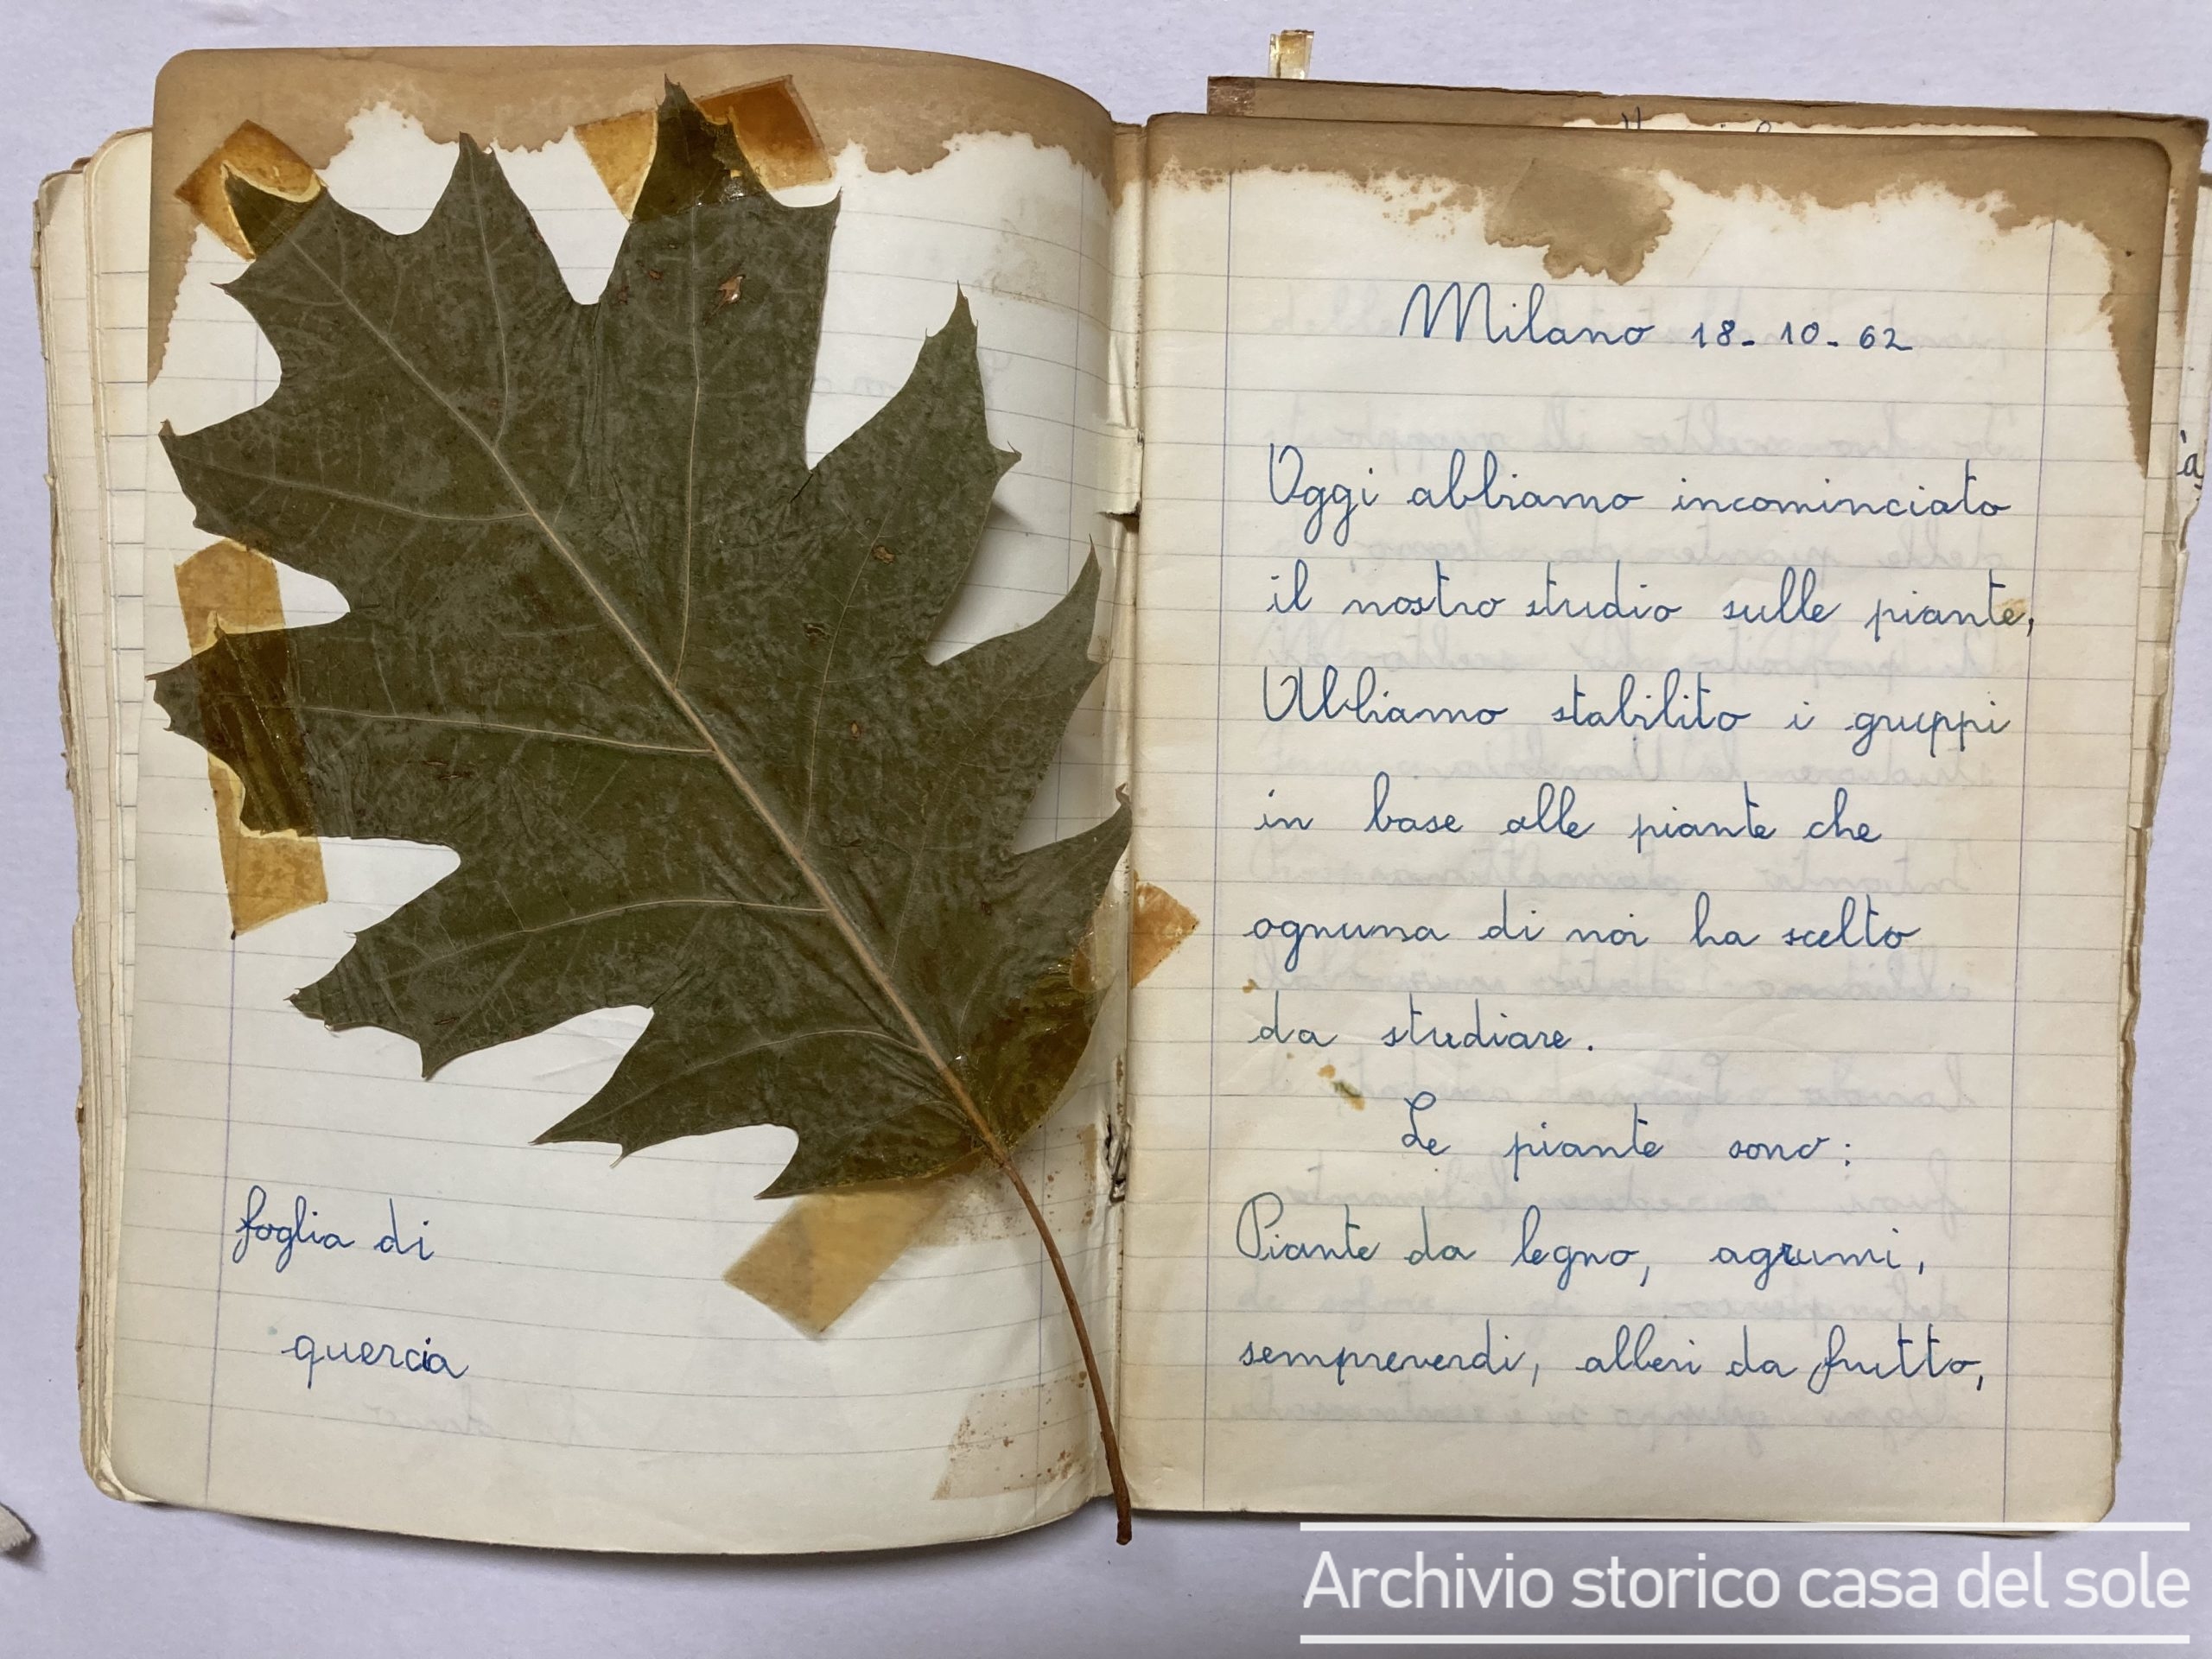 foglia di
quercia
Milano 18-10-62
Oggi abbiamo incominciato
il nostro studio sulle piante,
Abbiamo stabilito i gruppi
in base alle piante che
ognuna di noi ha scelto
da studiare.
Le piante sono:
Piante da legno, agrumi,
sempreverdi, alberi da frutto,
Archivio storico casa del sole